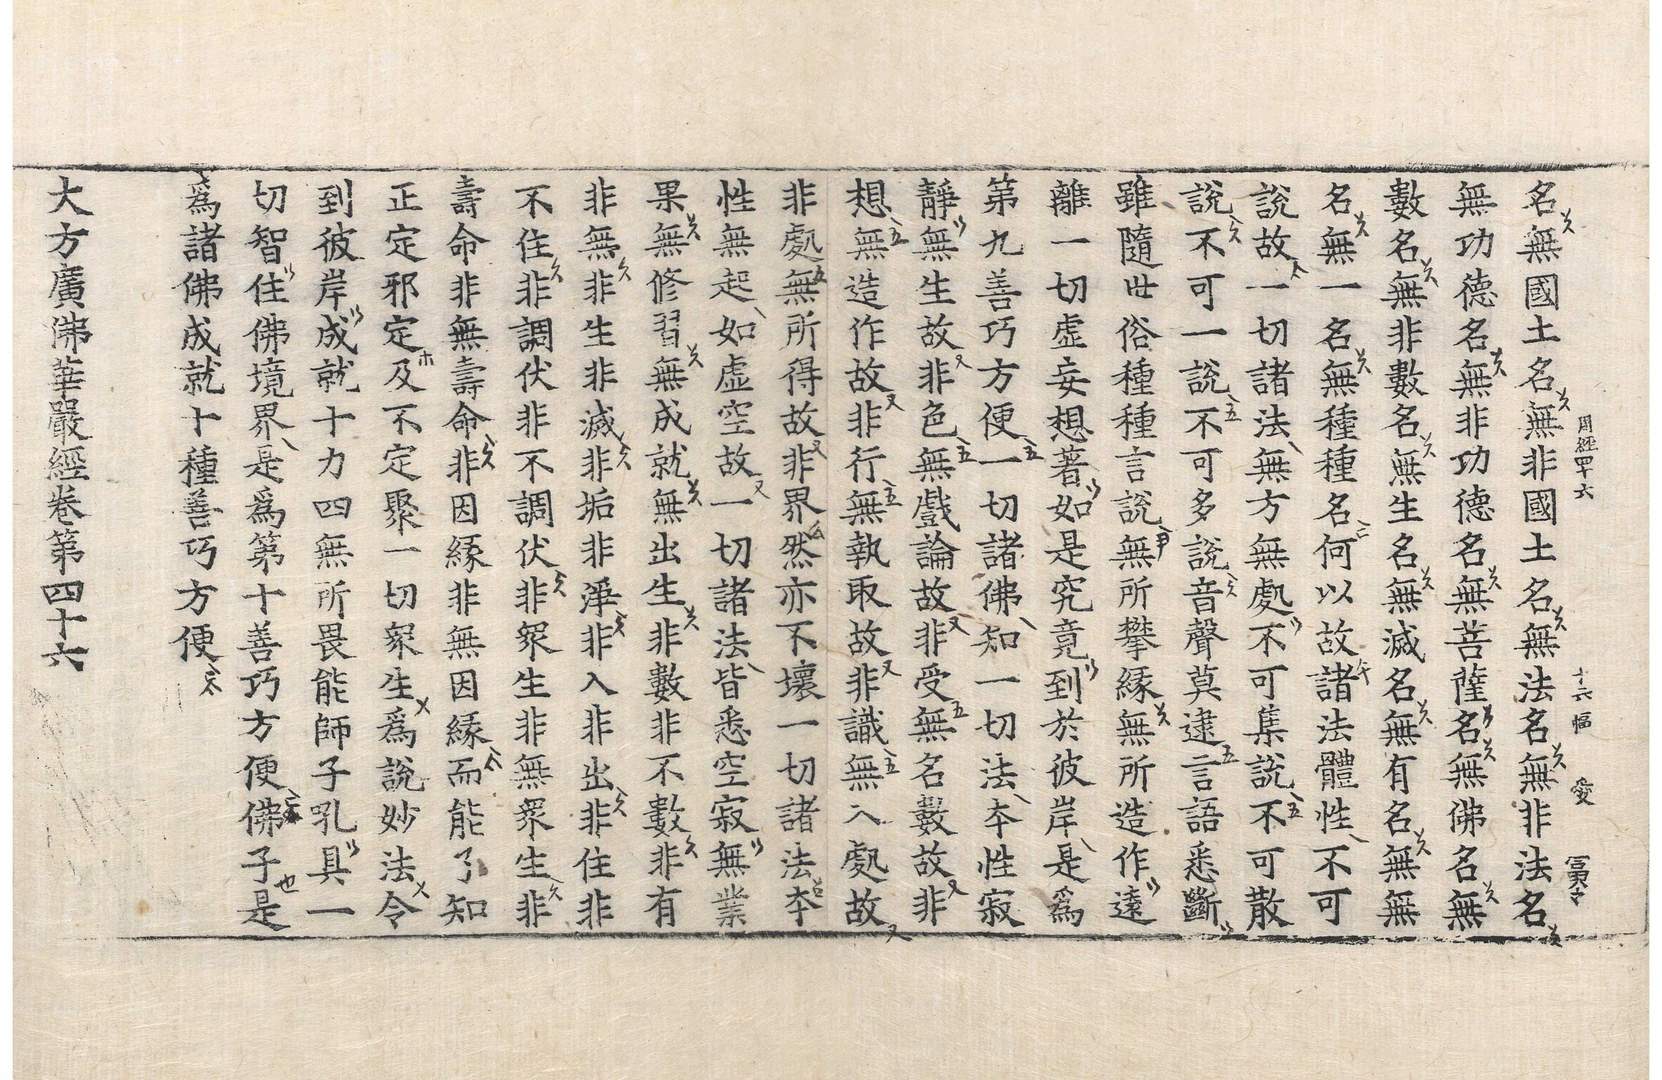 周經四十六 十六幅 愛
名無國土名無非國土名無法名無非法名
無功德名無非功德名無菩薩名無佛名無
數名無非數名無生名無滅名無有名無無
名無一名無種種名何以故諸法體性不可
說故一切諸法無方無處不可集說不可散
說不可一說不可多說音聲莫逮言語悉斷
雖隨世俗種種言說無所攀緣無所造作遠
離一切虛妄想著如是究竟到於彼岸是為
第九善巧方便一切諸佛知一切法本性寂
靜無生故非色無戲論故非受無名數故非
想無造作故非行無執取故非識無入處故
非處無所得故非界然亦不壞一切諸法本
性無起如虛空故一切諸法皆悉空寂無業
果無修習無成就無出生非數非不數非有
非無非生非滅非垢非淨非入非出非住非
不住非調伏非不調伏非眾生非無眾生非
壽命非無壽命非因緣非無因緣而能了知
正定邪定及不定聚一切眾生為說妙法令
到彼岸成就十力四無所畏能師子吼具一
切智住佛境界是為第十善巧方便佛子是
為諸佛成就十種善巧方便
大方廣佛華嚴經卷第四十六